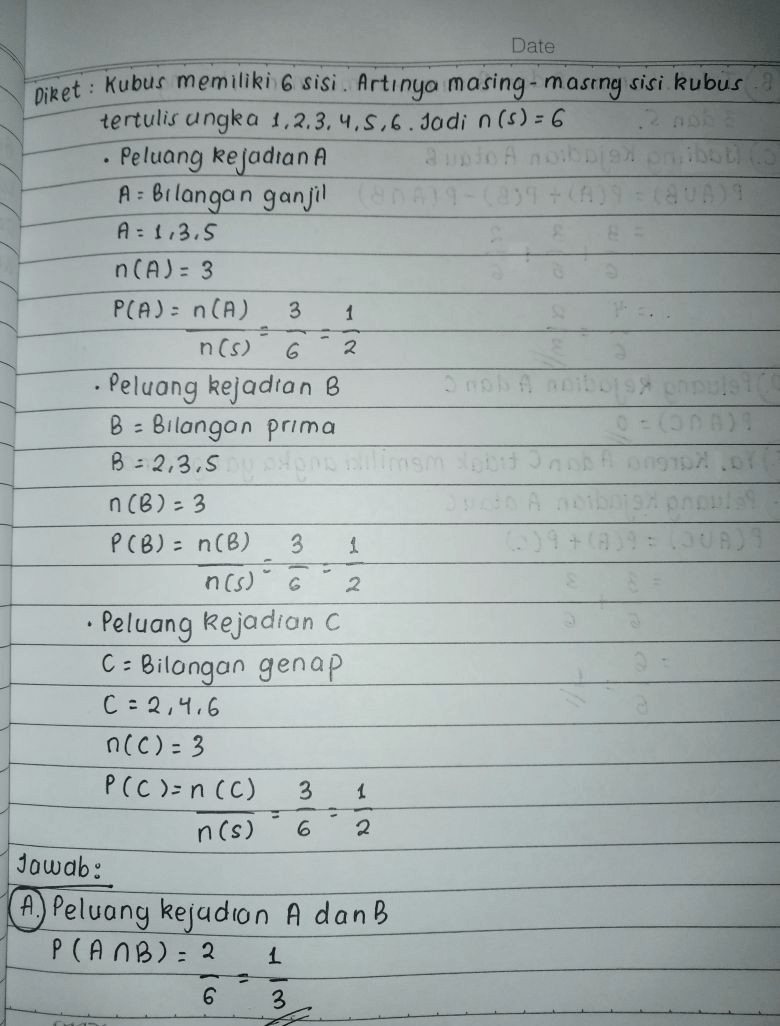 Date
Diket : Kubus memiliki 6 sisi. Artinya masing-masing sisi kubus
tertulis angka 1,2,3,4,5,6. Jadi n(s) = 6
• Peluang kejadian A
A = Bilangan ganjil
A = 1,3,5
n(A) = 3
P(A) = n(A)/n(s) = 3/6 = 1/2
• Peluang kejadian B
B = Bilangan prima
B = 2,3,5
n(B) = 3
P(B) = n(B)/n(s) = 3/6 = 1/2
• Peluang kejadian C
C = Bilangan genap
C = 2,4,6
n(C) = 3
P(C) = n(C)/n(s) = 3/6 = 1/2
Jawab:
A.) Peluang kejadian A dan B
P(A∩B) = 2/6 = 1/3